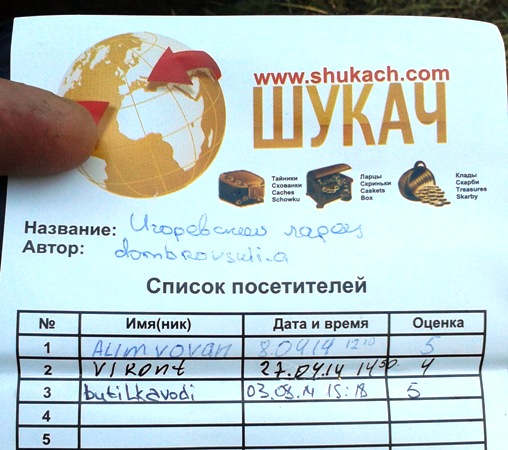 www.shukach.com
ШУКАЧ
Тайники Ларцы Клады
Схованки Скриньки Скарби
Caches Caskets Treasures
Schowku Box Skarby
Название: Игоревский ларец
Автор: dombrovskii.a
Список посетителей
№ Имя(ник) Дата и время Оценка
1 ALIMVOVAN 8.04.14 12 10 5
2 VIRONT 27.04.14 14 50 4
3 butilkavodi 03.08.14 15:18 5
4
5